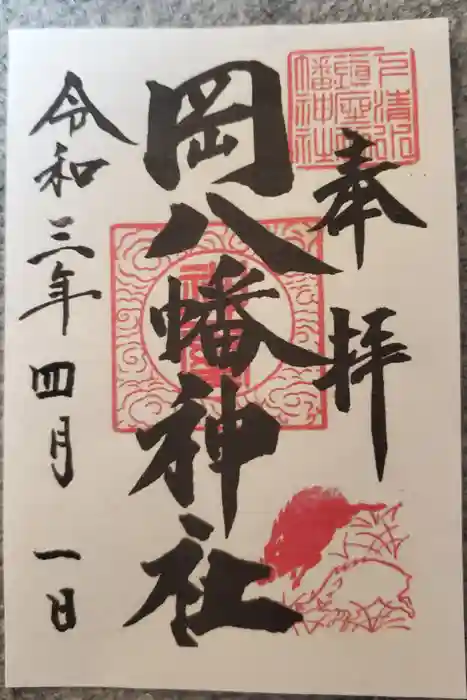 奉拝
岡八幡神社
令和三年四月一日